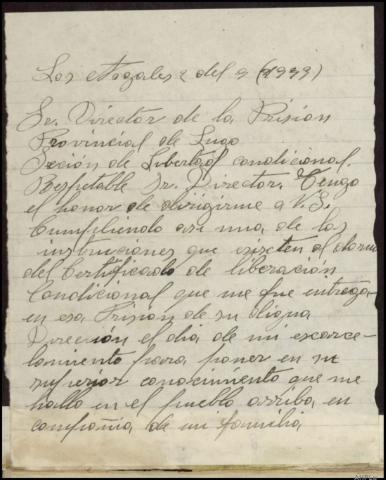 Los Nogales 2 del 9 (1939)
Sr. Director de la Prision
Provincial de Lugo
Sección de Libertad condicional.
Respetable Sr. Director. Tengo
el honor de dirigirme a V.S.
Cumpliendo asi una de las
instruciones que al
del Certificado de liberación
Condicional que me fue entrega
en esa Prision de su digna
Direccion el dia de mi excarce-
lamiento para poner en su
superior conocimiento que me
hallo en el pueblo arriba en
compañia de mi familia